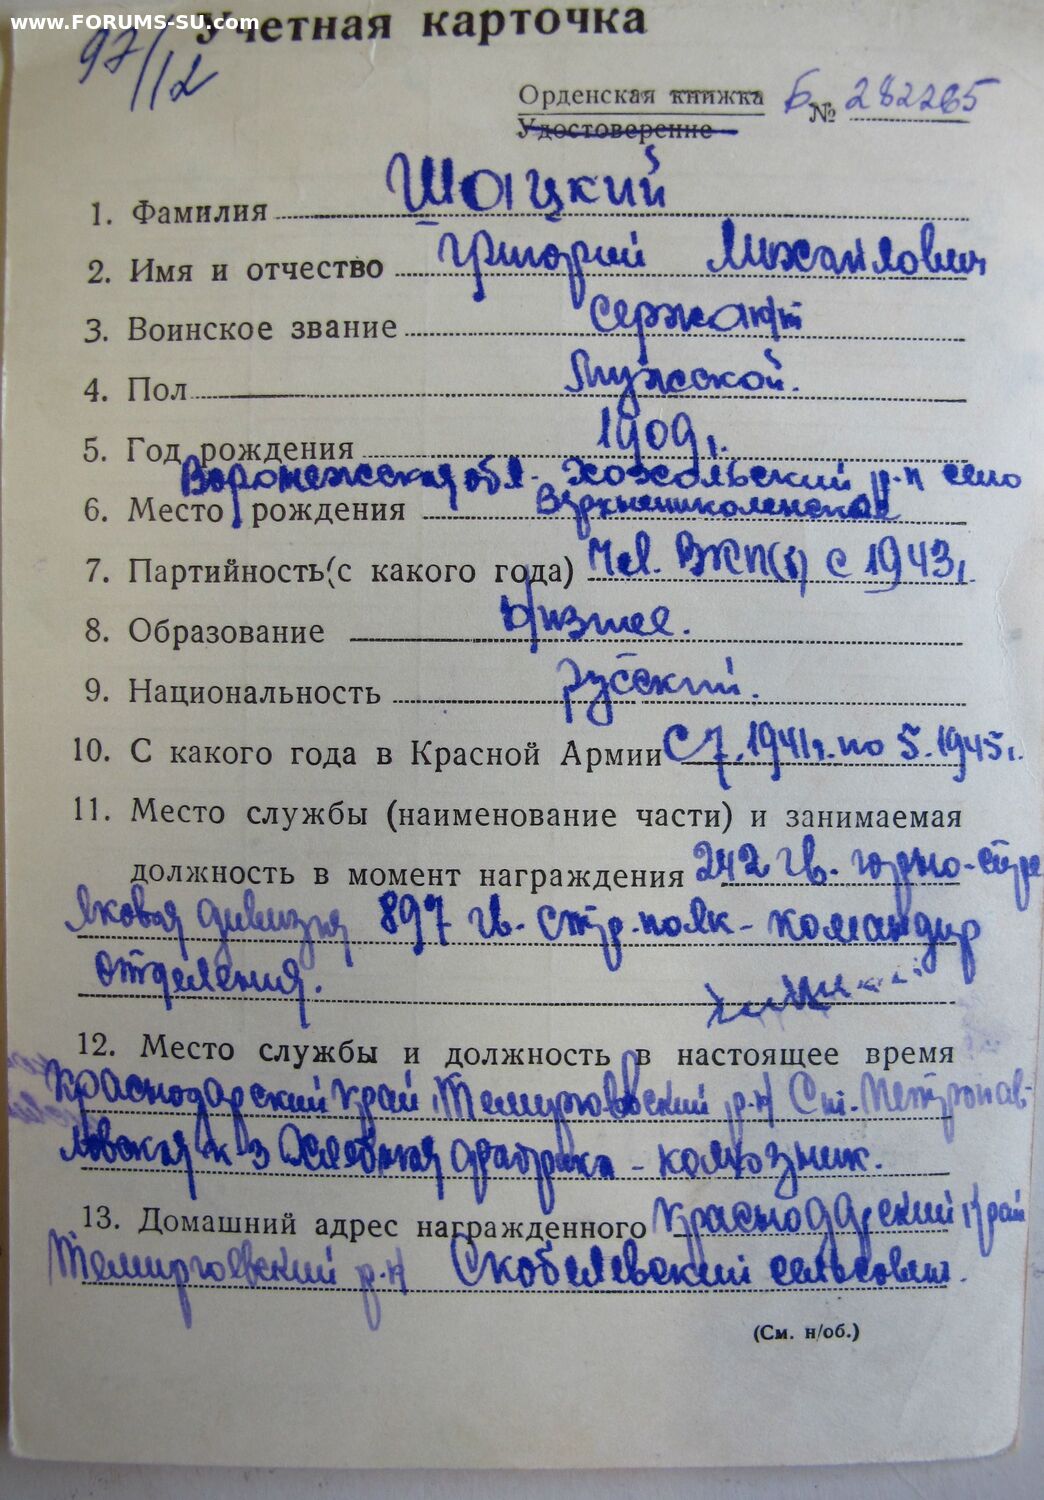 www.FORUMS-SU.com
Учетная карточка
97/12
Орденская книжка Б № 282265
Удостоверение
1. Фамилия Шацкий
2. Имя и отчество Григорий Михайлович
3. Воинское звание сержант
4. Пол Мужской.
5. Год рождения 1909 г.
Воронежская обл. Хохольский р-н село
6. Место рождения
7. Партийность (с какого года) Чл. ВКП(б) с 1943 г.
8. Образование Низшее.
9. Национальность русский.
10. С какого года в Красной Армии С 7.1941 г. по 5.1945 г.
11. Место службы (наименование части) и занимаемая
должность в момент награждения 242 гв. горно-стре
лковая дивизия 897 гв. стр. полк - командир
отделения.
12. Место службы и должность в настоящее время
Краснодарский край, Темиргоевский р-н Ст. Петропав-
ловская к-з - колхозник.
13. Домашний адрес награжденного Краснодарский край
Темиргоевский р-н Скобелевский сельсовет.
(См. н/об.)